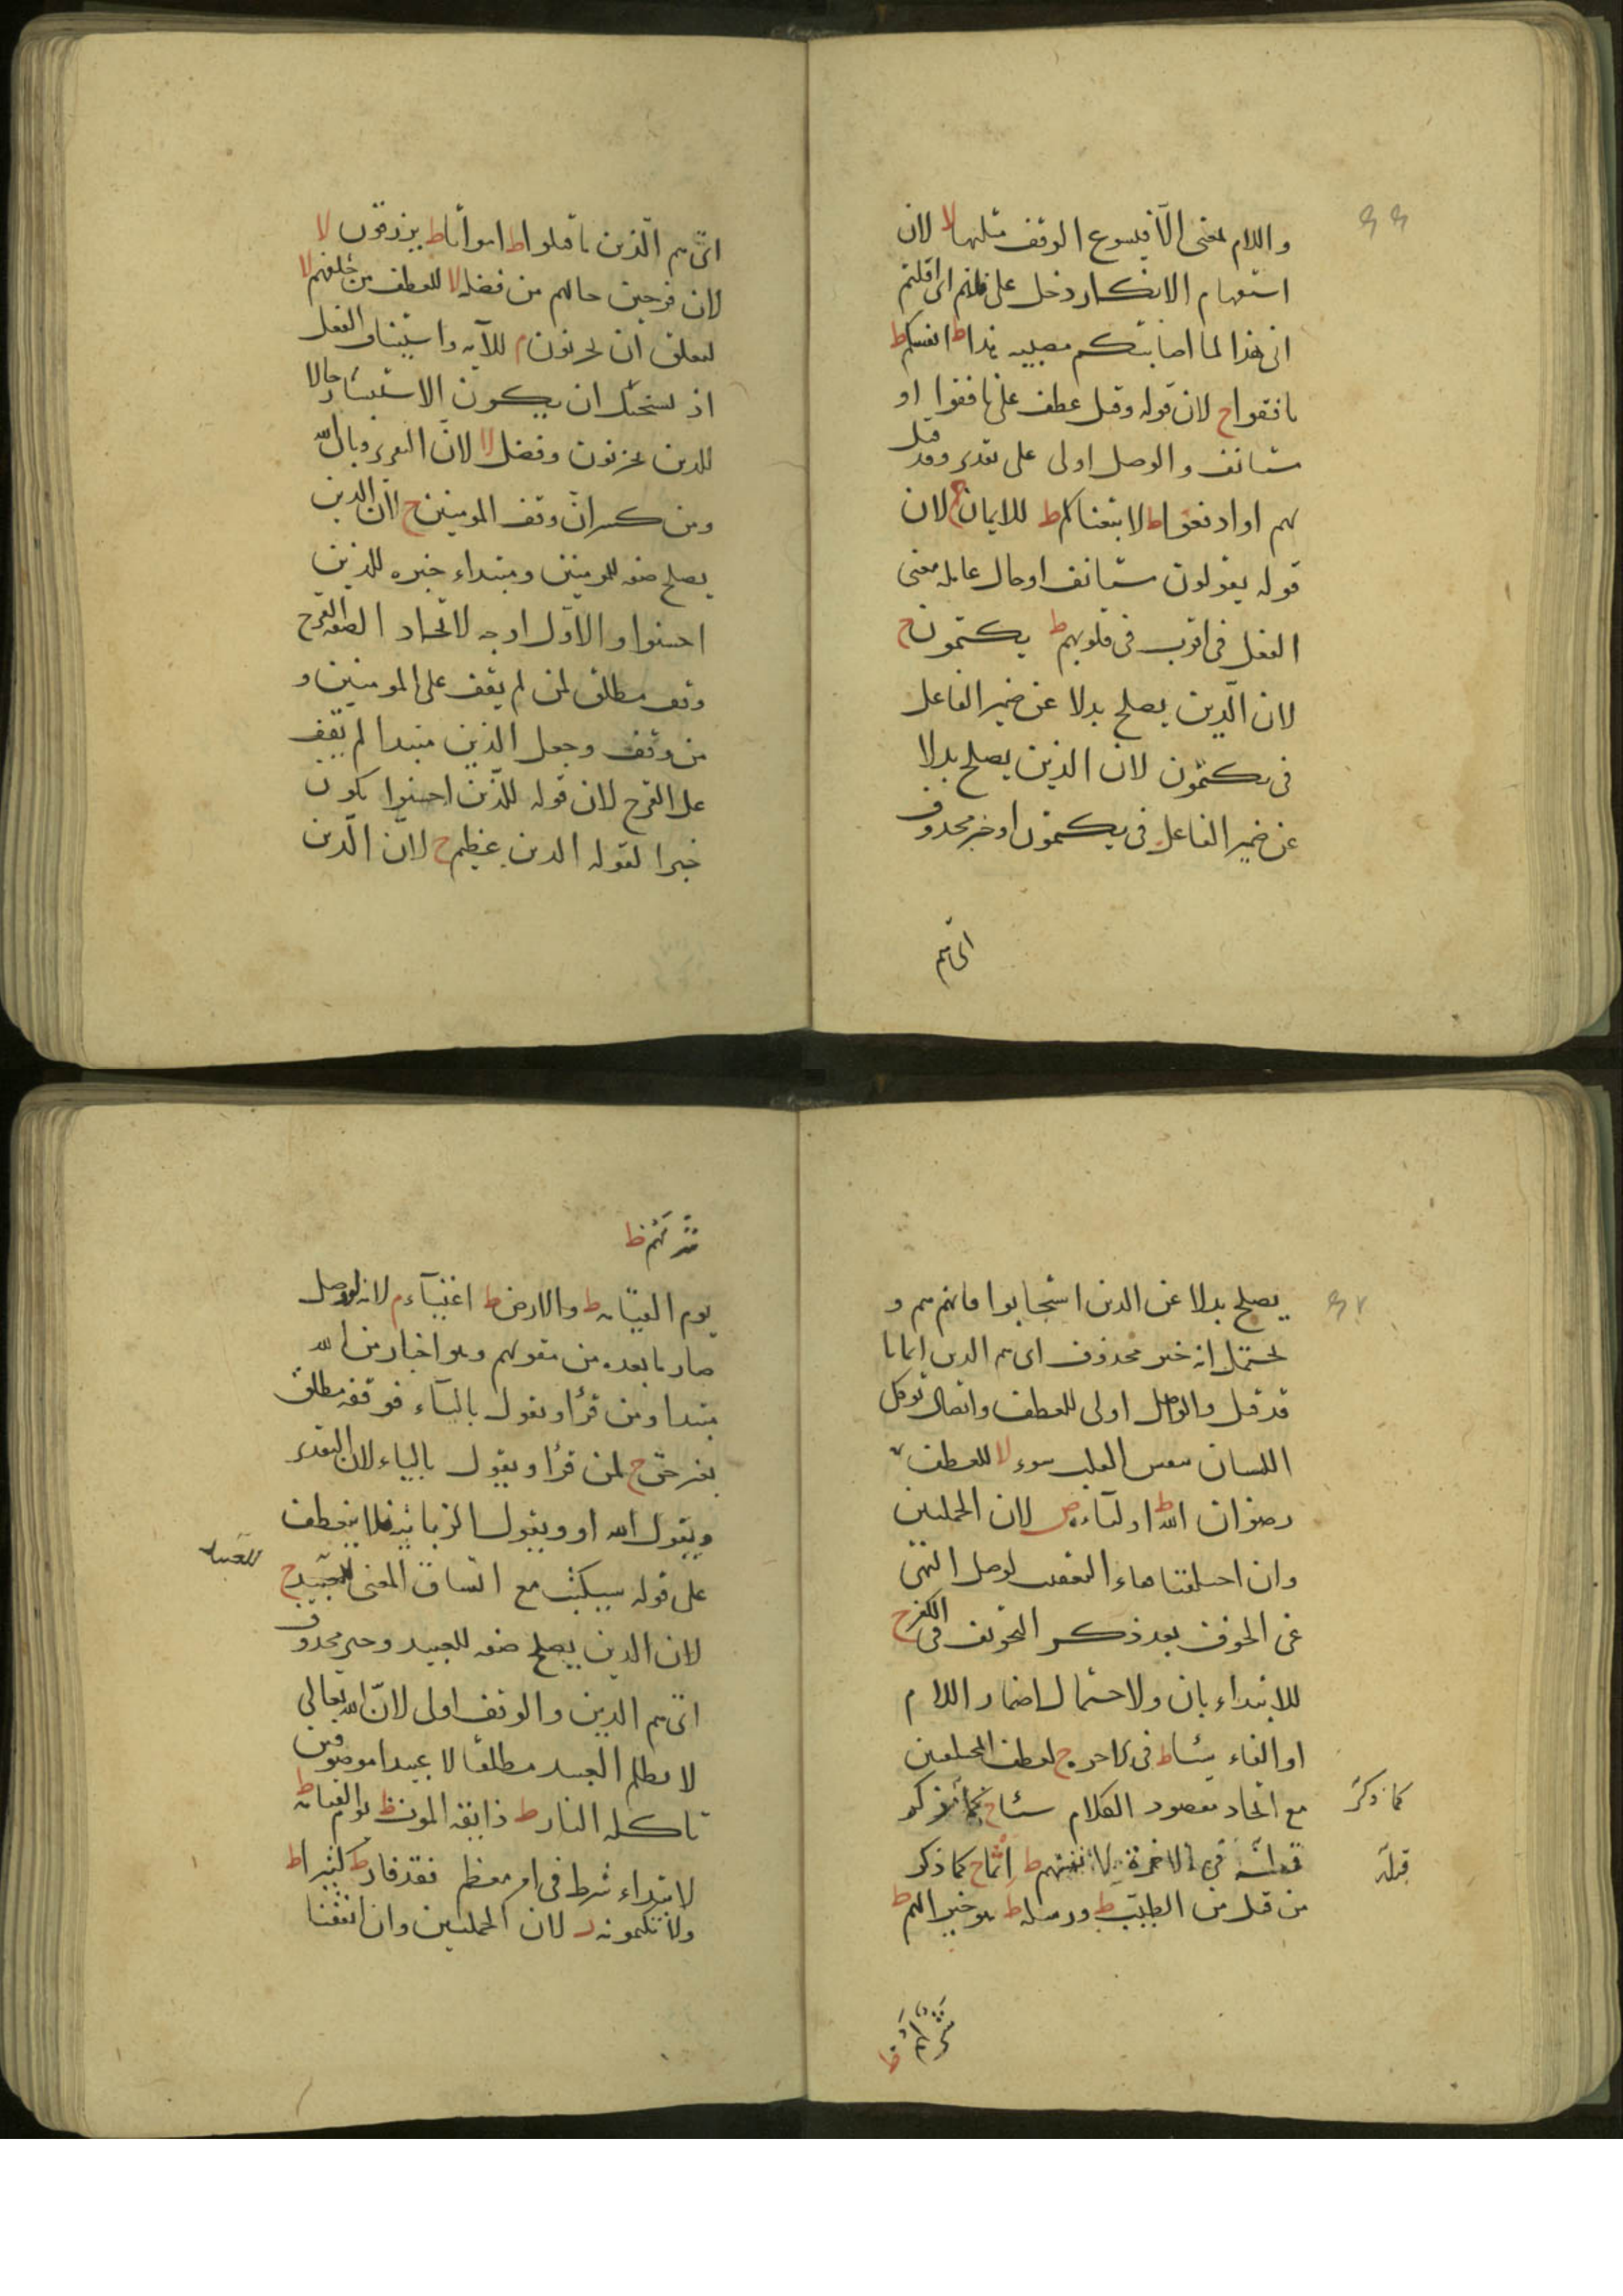 واللام بمعنى الا فيسوع الوقف مثلها لا لان
استفهام الانكار دخل على قلتم اى اقلتم
انى هذا لما اصابتكم مصيبه هذا ط انفسكم ط
نافقوا ح لان قوله وقيل عطف على نافقوا او
ستانف والوصل اولى على تقدير وقد قيل
لهم او ادفعوا ط لا تبعناكم ط للايمان ح لان
قوله يقولون ستانف او حال عامله معنى
الفعل فى اقرب فى قلوبهم ط يكتمون ح
لان الذين يصلح بدلا عن ضمير الفاعل
فى يكتمون لان الذين يصلح بدلا
عن ضمير الفاعل فى يكتمون او خبر محذوف
اى هم
اى هم الذين ما قتلوا ط امواتا ط يرزقون لا
لان فرحين حالهم من فضله لا للعطف من خلفهم لا
لتعلق ان يحزنون م للآيه واستيناف الفعل
اذ يستحيل ان يكون الاستبشار حالا
للذين يحزنون وفضل لا لان التقدير وبان الله
ومن كسر ان وقف المومنين ح لان الذين
يصلح صفه للمومنين ومبتداء خبره للذين
احسنوا والاول اوجه لاتحاد الصفه القرح
وقف مطلق لمن لم يقف على المومنين و
من وقف وجعل الذين مبتدا لم يقف
على القرح لان قوله للذين احسنوا يكون
خبرا لقوله الذين عظيم ح لان الذين
يصلح بدلا عن الذين استجابوا فانهم هم و
يحتمل انه خبر محذوف اى هم الذين ايمانا
قد قيل والوصل اولى للعطف واتصال توكل
اللسان القلب سوء لا للعطف
رضوان الله ط اولياءه ص لان الجملتين
وان اختلفتا فاء التعقيب لوصل النهى
عن الخوف بعد ذكر التخويف فى الكفر ح
للابتداء بان ولاحتمال اضمار اللام
او الفاء شيئا ط فى الاخره ج لعطف المختلفين
مع اتحاد مقصود الكلام شيئا ح كما ذكر
كما ذكر
فى الاخرة لانفسهم ط اثما ح كما ذكر
من قبل من الطيب ط ورسله ط هو خيرا لهم ط
شر لهم ط
يوم القيامه ط والارض ط اغنياء م لانه لو وصل
صار ما بعده من مقولهم وهو اخبار من الله
مبتدا ومن قرأ ونقول بالياء فوقفه مطلق
بغير حق ح لمن قرأ ويقول بالياء لان التقدير
ويقول الله او ويقول الزبانيه فلا ينعطف
على قوله سيكتب مع اتساق المعنى للعبيد ح
للعبيد
لان الذين يصلح صفه للعبيد وخبر محذوف
اى هم الذين والوقف اولى لان الله تعالى
لا يظلم العبيد مطلقا لا عبيدا موصوفين
تاكله النار ط ذايقه الموت ط يوم القيامه ط
لابتداء شرط فى امر معظم فقد فاز ط كثيرا ط
ولا تكتمونه ز لان الجملتين وان اتفقتا